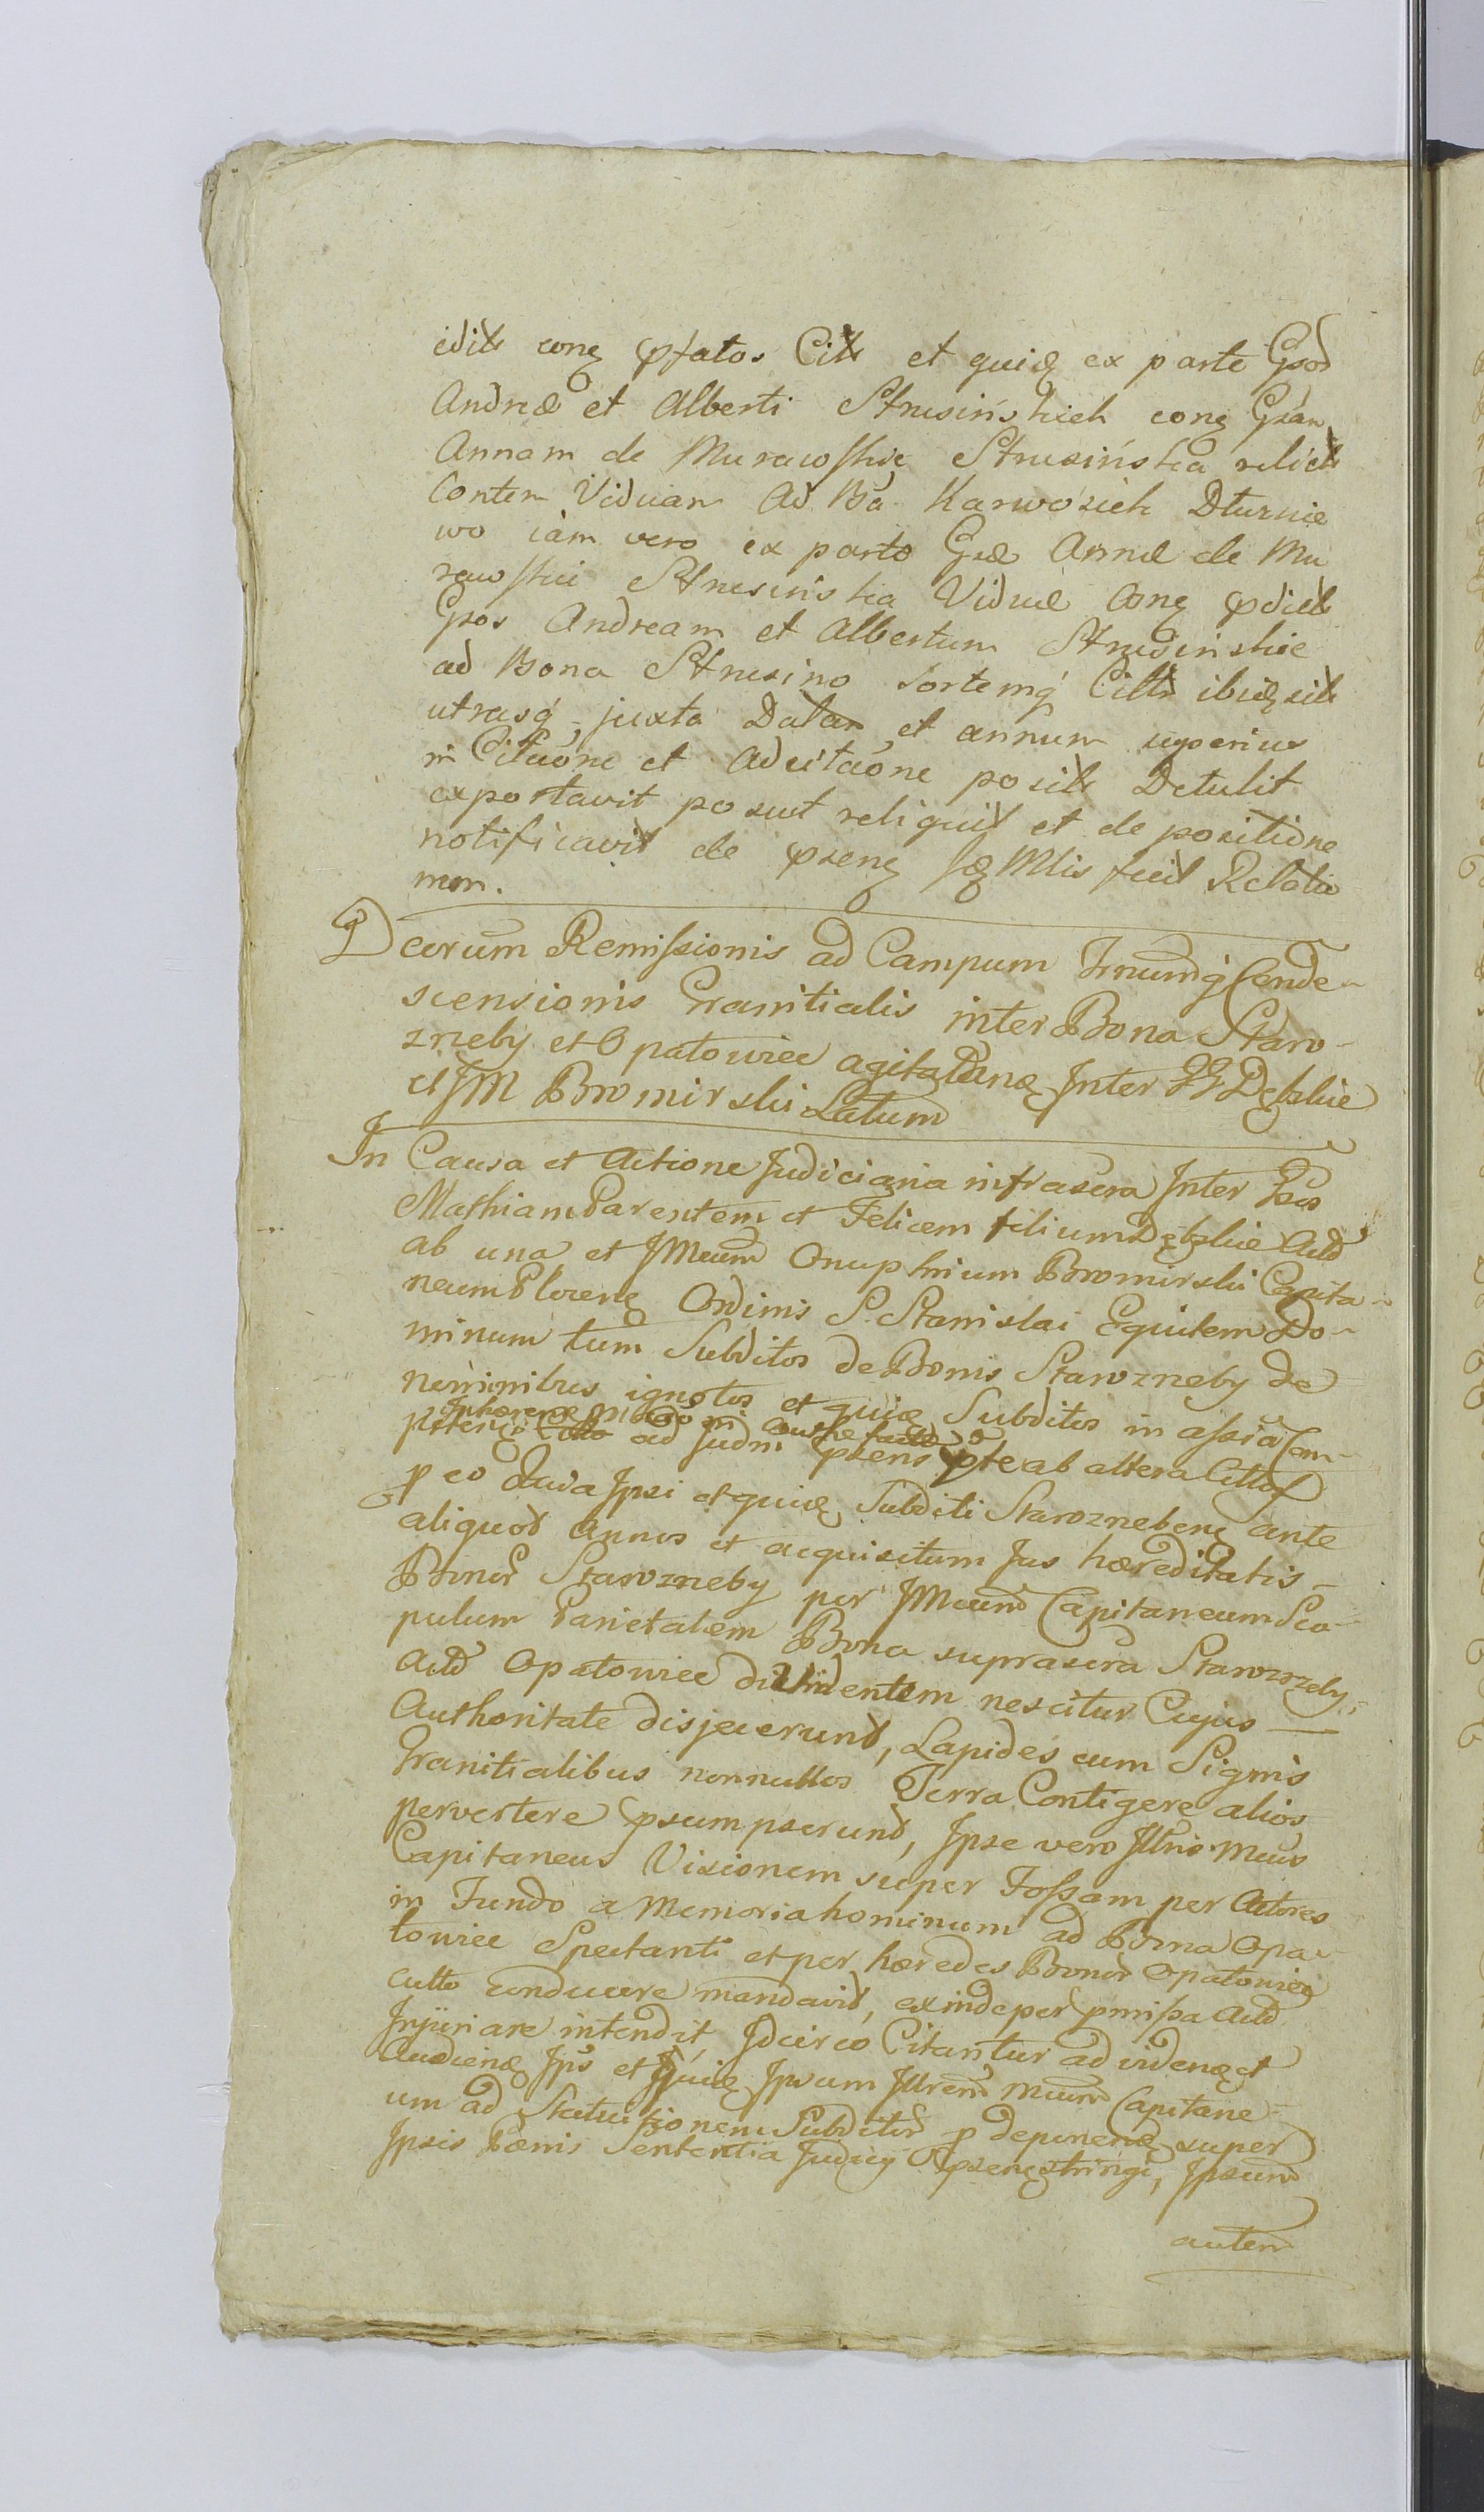 edit cong pfatos Citt et quidę ex parte Gsor
Andreæ et Alberti Strusińskich cong Gsam
Annam de Murawskie Strusińska relict
Contem Viduam Ad Ba Karwosieh Dturnie
wo iàm vero ex parte Gsæ Annæ de Mu
rawskie Strusinska Viduæ Cong pdict
Gsos Andream et Albertum Strusinskie
ad Bona Strusino sortemq́ Citt ibidę sit
utrasq́, juxta Datam et annum superius
in Citaōne et Adcitaōne posit Detulit
exportavit posuit reliquit et de positione
notificavit de psenę Sę Mtis fecit Relatio
nem.
Decrum Remissionis ad Campum Fnumq́ Conde-
scensionis Granitialis inter Bona Staro-
zreby et Opatowiec agitatam Inter GG Dębskie
et JM Bromirski Latum
In Causa et Actione Judiciaria infrascra Inter Gsos
Mathiam Parentem et Felicem filium Dębskie Actd
ab una et JMcum Onuphrium Bromirski Capita-
neum Plocenę Ordinis S. Stanislai Equitem Do-
minum tum Subditos de Bonis Starozreby de
nominibus ignotos et quidę Subditos in assia Com-
ad Judm psens pte ab altera Cittos
p eo Quia Ipsi et quidę Subditi Starozrebenę ante
aliquod Annos et acquisitum Jus hæreditatis-
Bonor Starozreby per JMcum Capitaneum Sco-
pulum Parietalem Bona suprascra Starozreby
Actd Opatowiec dividentem nescitur Cujus
Authoritate disjecerunt, Lapides cum Signis
Granitialibus nonnullos Terra Contigere alios
pervertere psumpserund, Ipse vero Jllris Mcus
Capitaneus Visionem super Fossam per Actores
in Fundo a Memoria hominum ad Bona Opa-
towiec Spectanti et per hæredes Bonor Opatowiec
culto conducere mandavit, exinde per pmissa Actd
Injuriare intendit, Idcirco Citantur ad videnę et
Audienę Ips et quidę Ipsum Jllrem Mcum Capitane-
um ad Statuitionem Subditor p deponenę super
Ipsis Pœnis Sententia Judicy psenę stringi, Ipsum
autem